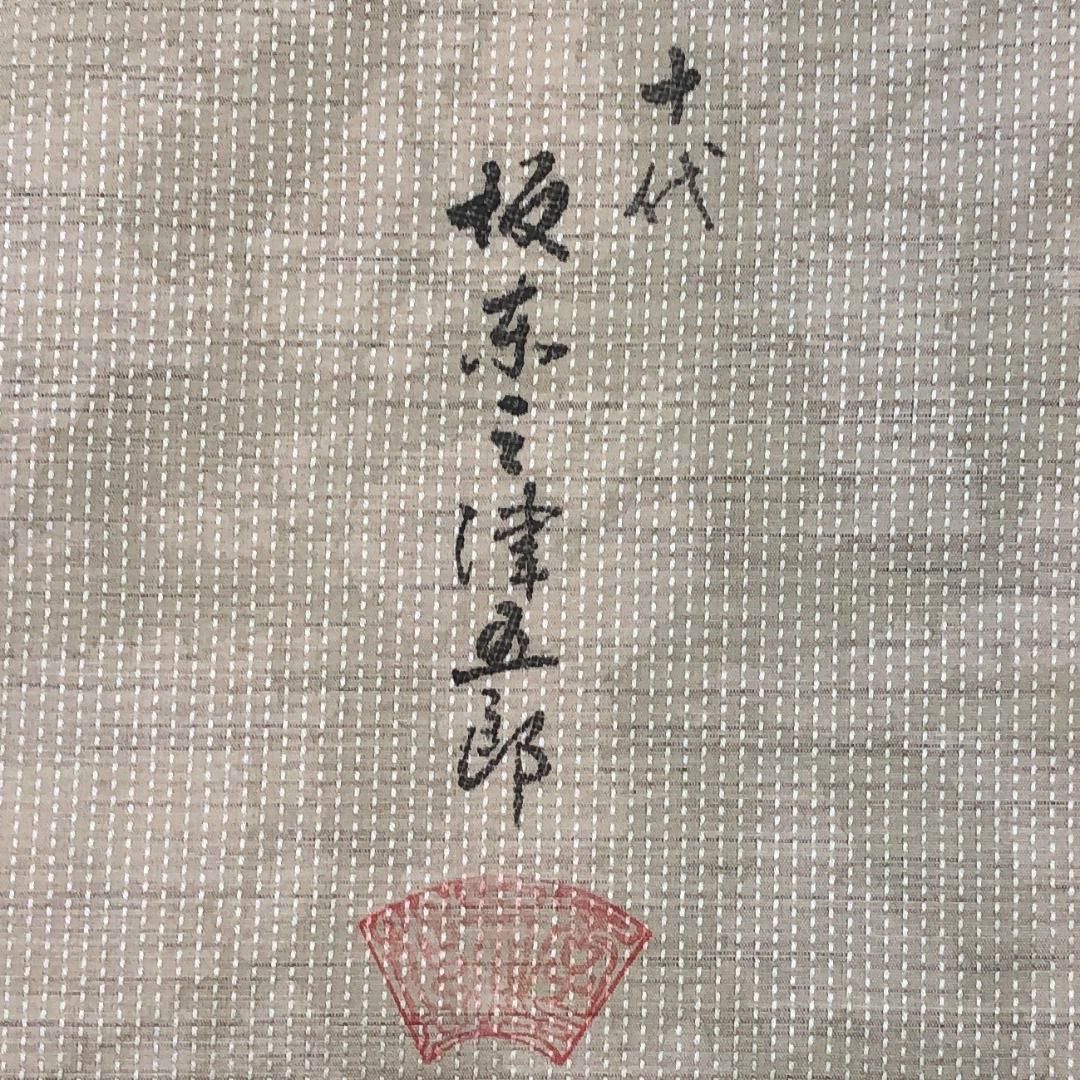 十代
坂東三津五郎